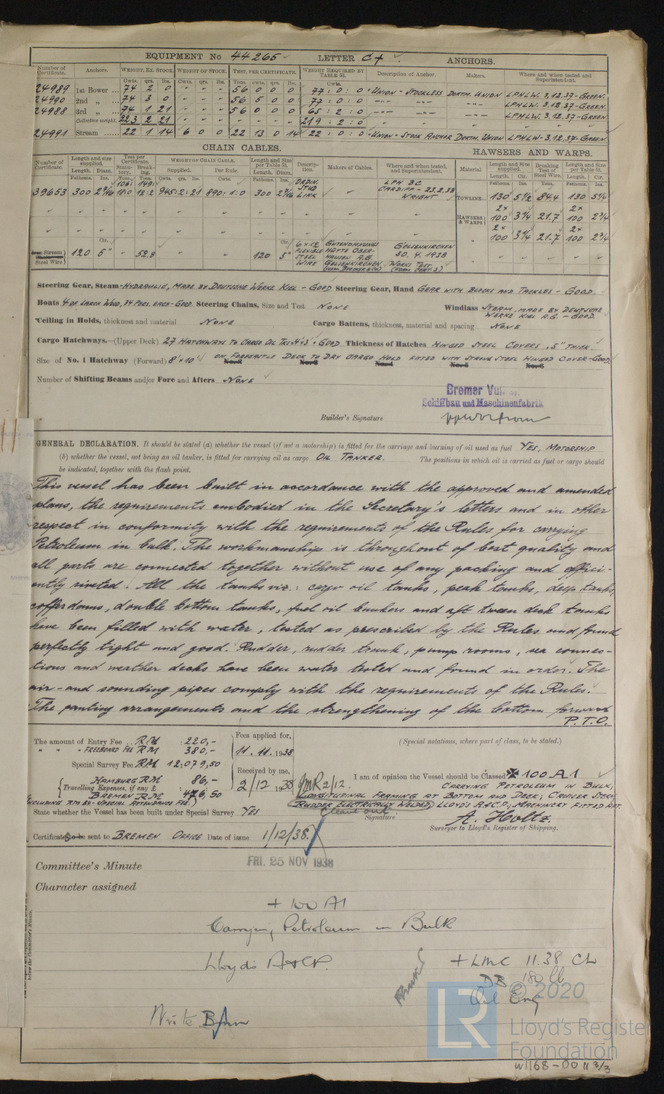 EQUIPMENT No 44265 LETTER C+ ANCHORS.
Number of Certificate. Anchors. WEIGHT, EX. STOCK WEIGHT OF STOCK. TEST, PER CERTIFICATE. WEIGHT REQUIRED BY TABLE 31. Description of Anchor. Makers. Where and when tested and Superintendent.
24989 1st Bower 74 2 0 56 0 0 0 77 : 0 : 0 UNION - STOCKLESS DORTM. UNION LPHLW. 3.12.37 - GREEN.
24990 2nd 74 3 0 56 5 0 0 77 : 0 : 0 LPHLW. 3.12.37 - GREEN.
24988 3rd 74 1 21 56 0 0 0 65 : 2 : 0 LPHLW. 3.12.37 - GREEN.
Collective weight 223 2 21 219 : 2 : 0
24991 Stream 22 1 14 6 0 0 22 13 0 14 22 : 0 : 0 UNION - STOCK ANCHOR DORTM. UNION LPHLW. 3.12.37 - GREEN.
CHAIN CABLES. HAWSERS AND WARPS.
39653 300 945:2:21 890:1:0 300 STUD LINK
TOWLINE 130 5½ 84.4 130 5½
HAWSERS & WARPS 100 3¼ 21.7 100 2¾
100 3¼ 21.7 100 2¾
Steel Wire 120 5" 52.8 120 5" 6 x 12 FLEXIBLE WIRE GELSENKIRCHEN 30.4.1938
Steering Gear, Steam - HYDRAULIC, MADE BY DEUTSCHE WERKE KIEL - GOOD Steering Gear, Hand GEAR WITH BLOCKS AND TACKLES - GOOD.
Boats 4 OF WHICH WOOD, 14 PERS. EACH - GOOD. Steering Chains, Size and Test NONE Windlass STEAM, MADE BY DEUTSCHE WERKE KIEL A.G. - GOOD.
Ceiling in Holds, thickness and material NONE Cargo Battens, thickness, material and spacing NONE
Cargo Hatchways.—(Upper Deck) 27 HATCHWAYS TO CARGO OIL TKS 4'x3' - GOOD. Thickness of Hatches HINGED STEEL COVERS .5" THICK
Size of No. 1 Hatchway (Forward) 8'x10' ON FORECASTLE DECK TO DRY CARGO HOLD FITTED WITH STRONG STEEL HINGED COVER - GOOD
Number of Shifting Beams and/or Fore and Afters NONE
Bremer Vulkan
Schiffbau und Maschinenfabrik
Builder's Signature
GENERAL DECLARATION. It should be stated (a) whether the vessel (if not a motorship) is fitted for the carriage and burning of oil used as fuel YES, MOTORSHIP
(b) whether the vessel, not being an oil tanker, is fitted for carrying oil as cargo OIL TANKER. The positions in which oil is carried as fuel or cargo should
be indicated, together with the flash point.
This vessel has been built in accordance with the approved and amended
plans, the requirements embodied in the Secretary's letters and in other
respect in conformity with the requirements of the Rules for carrying
Petroleum in bulk. The workmanship is throughout of best quality and
all parts are connected together without use of any packing and effici-
ently riveted. All the tanks viz: cargo oil tanks, peak tanks, deep tanks,
cofferdams, double bottom tanks, fuel oil bunkers and aft tween deck tanks
have been filled with water, tested as prescribed by the Rules and found
perfectly tight and good. Rudder, rudder trunk, pump rooms, sea connec-
tions and weather decks have been water tested and found in order. The
air- and sounding pipes comply with the requirements of the Rules.
The panting arrangements and the strengthening of the bottom forward
P.T.O.
The amount of Entry Fee RM 220,- Fees applied for, (Special notations, where part of class, to be stated.)
FREEBOARD FEE RM 380,- 11.11.1938
Special Survey Fee RM 12,079,50 Received by me,
HAMBURG RM 86,- 2/12 1938
(Travelling Expenses, if any £ BREMEN RM 46,50
(INCLUDING RM 25.- SPECIAL ATTENDANCE FEE)
I am of opinion the Vessel should be Classed ✠ 100 A1
CARRYING PETROLEUM IN BULK,
LONGITUDINAL FRAMING AT BOTTOM AND DECK, CRUISER STERN
RUDDER ELECTRICALLY WELDED, LLOYD'S A&CP. MACHINERY FITTED AFT.
State whether the Vessel has been built under Special Survey YES
Signature A. Holtz.
Surveyor to Lloyd's Register of Shipping.
Certificate to be sent to BREMEN OFFICE. Date of issue 1/12/38
FRI. 25 NOV 1938
Committee's Minute
Character assigned
+ 100 A1
Carrying Petroleum in Bulk
Lloyds A&CP.
+ LMC 11.38 CL
DB 180 lb
Oil Eng
Write Bmn
LR
© 2020
Lloyd's Register
Foundation
W1168-0011 3/3